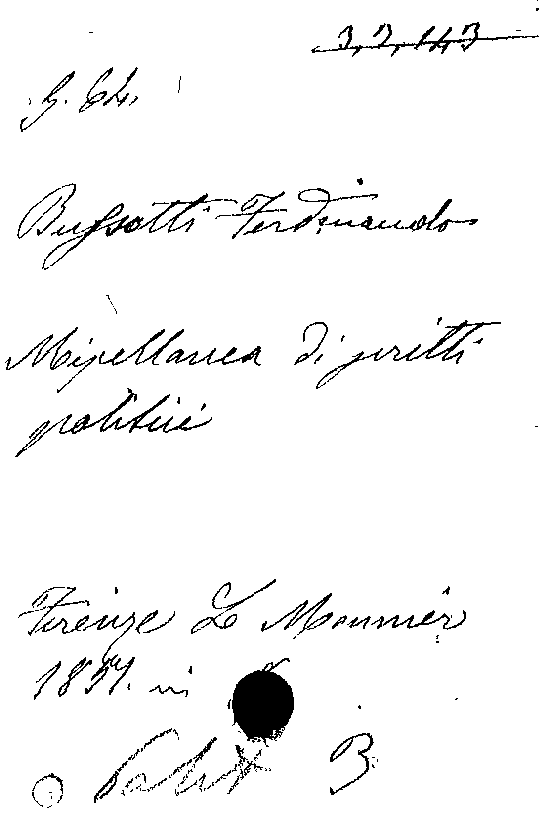 3,2,143
G. 62.
Bussotti Ferdinando
Miscellanea di scritti
politici
Firenze Le Monnier
1851. in
Polit B